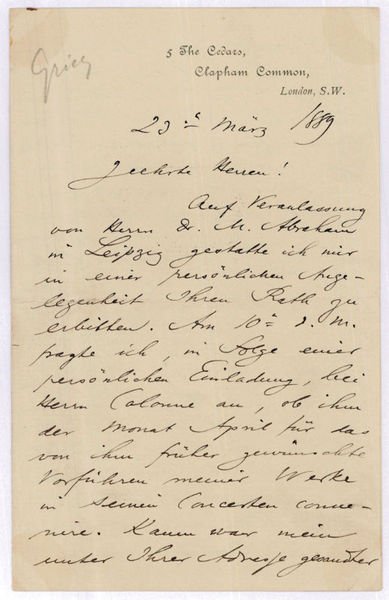 Grieg
5 The Cedars,
Clapham Common,
London, S.W.
23º März 1889
Geehrte Herren!
Auf Veranlassung
von Herrn Dr. M. Abraham
in Leipzig gestatte ich mir
in einer persönlichen Ange-
legenheit Ihren Rath zu
erbitten. Am 10º d. M.
fragte ich, in Folge einer
persönlichen Einladung, bei
Herrn Colonne an, ob ihm
der Monat April für das
von ihm früher gewünschte
Vorführen meiner Werke
in seinen Concerten conve-
nire. Kaum war mein
unter Ihrer Adresse gesandter